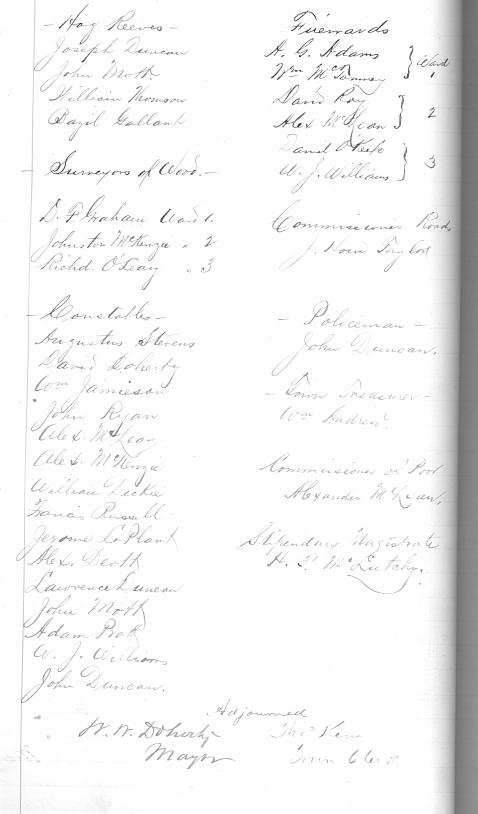 - Hog Reeves -
Joseph Duncan
John Mott
William Thomson
Bazil Gallant
- Surveyors of Wood. -
D. F. Graham Ward 1.
Johnston McKenzie " 2
Richd. O'Leary " 3
- Constables -
Augustus Stevens
David Doherty
Wm Jamieson
John Ryan
Alex. McLean
Alex. McKenzie
William Dickie
Francis Russell
Jerome LaPlant
Alex.
Lawrence Duncan
John Mott
Adam
W. J. Williams
John Duncan.
Firewards
A. G. Adams
Wm Ward 1
David Roy
Alex McLean 2
David O'Keefe
W. J. Williams 3
Commissioner Roads
J. Taylor
- Policeman -
John Duncan.
- Town Treasurer -
Wm Andrew.
Commissioner of Poor
Alexander McLean.
Stipendary Magistrate
H. McLutchy.
Adjourned
W. W. Doherty
Mayor
Thos Kerr
Town Clerk